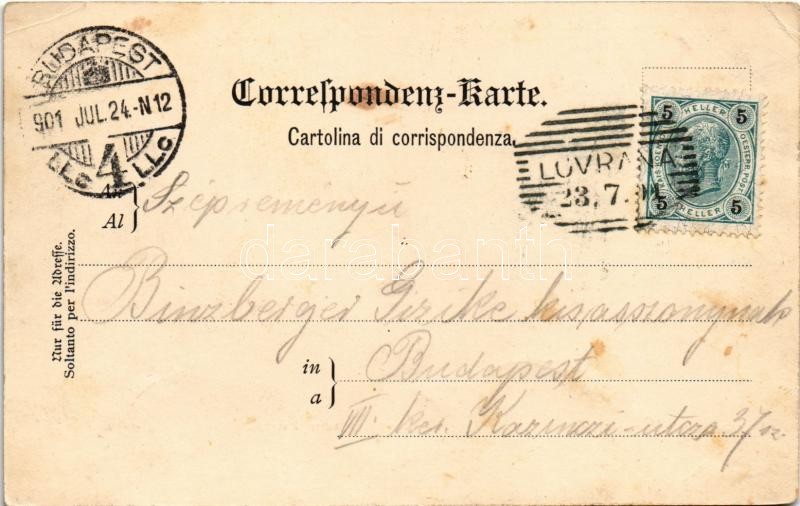 BUDAPEST
901 JUL. 24.-N12
4
Correspondenz-Karte.
Cartolina di corrispondenza.
LOVRANA
23. 7. 01
5 HELLER 5
OESTERR. POST
5 HELLER 5
An
Al
Szépreményű
Nur für die Adresse.
Soltanto per l'indirizzo.
Binzberger Gizike kisasszonynak
in
a
Budapest
VII. ker. Kazinczi-utcza 37 sz.
darabanth